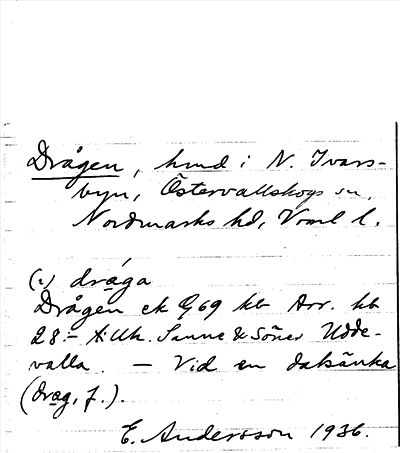 Drågen, hmd i N. Ivars-
byn, Östervallskogs sn,
Nordmarks hd, Vrml l.
(i) drá̱ga
Drågen ek G69 kb Arr. kb
28:- A: Uh. Sanne & Söner Udde-
valla. — Vid en dalsänka
(dra̱g, f.).
E. Andersson 1936.